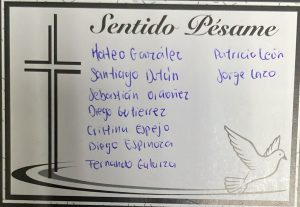 Sentido Pésame
Mateo González
Santiago
Sebastián Ordóñez
Diego Gutierrez
Cristina Espejo
Diego Espinoza
Fernando
Patricio León
Jorge Lazo